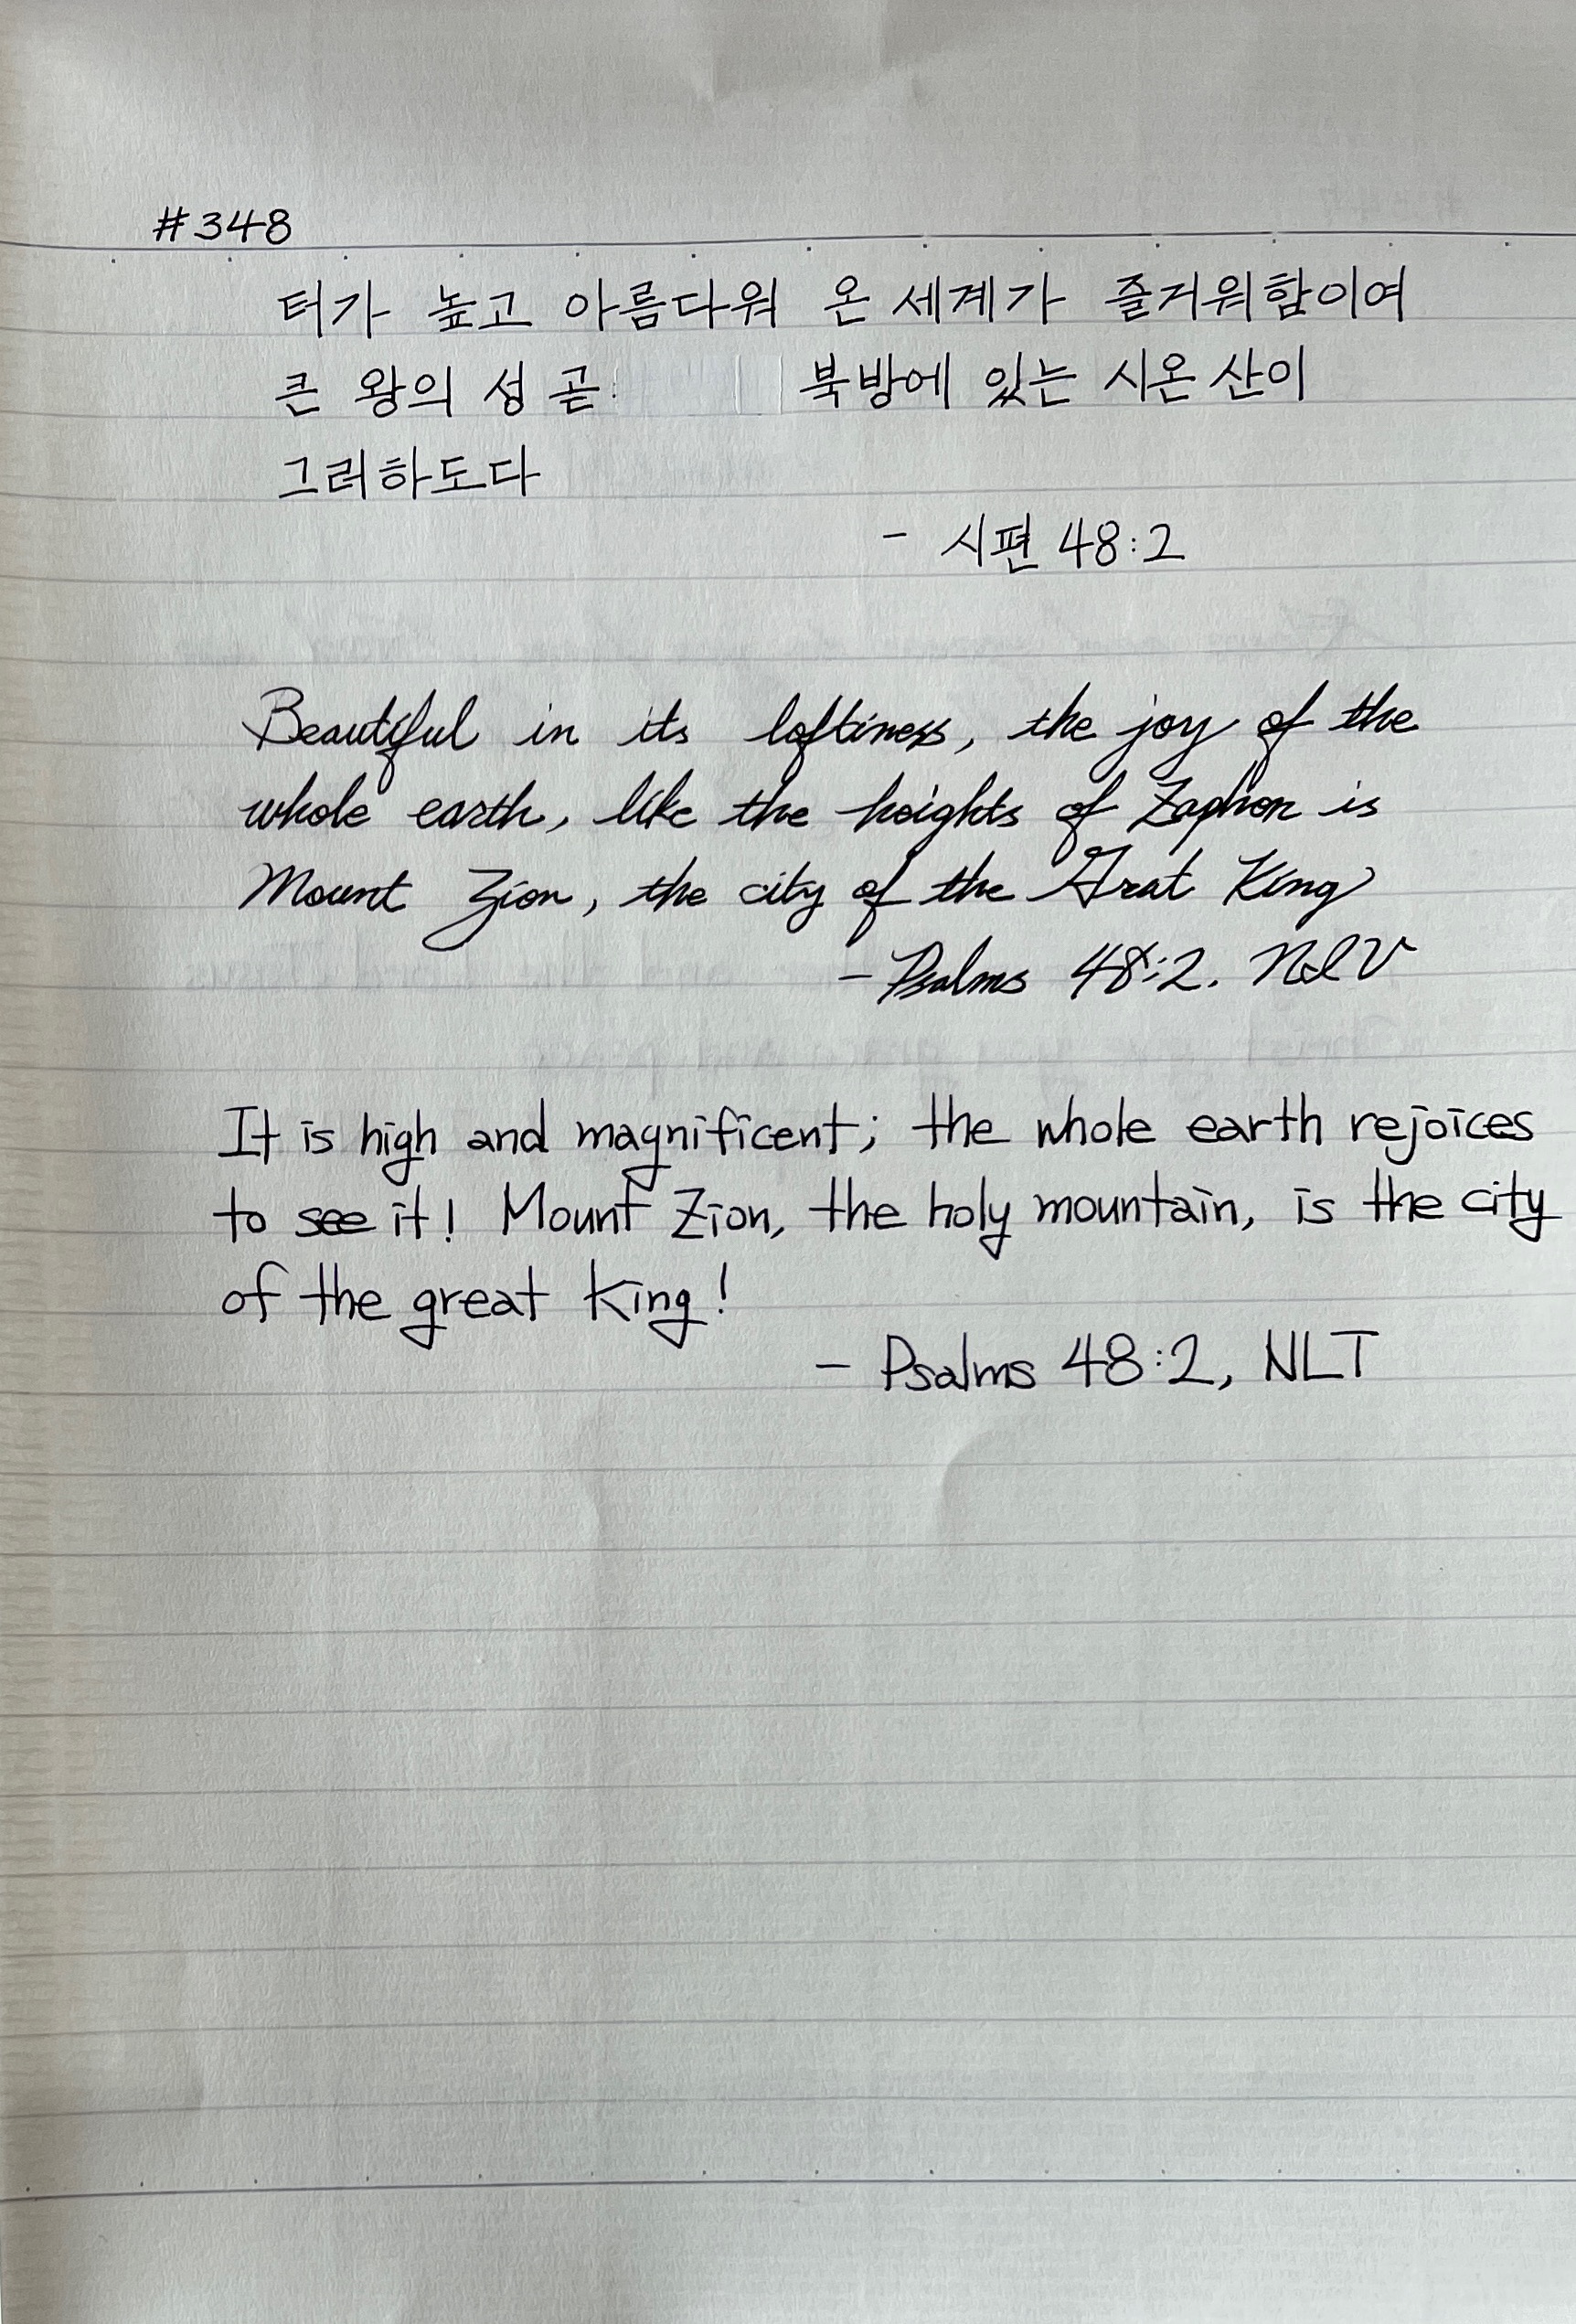 #348
터가 높고 아름다워 온 세계가 즐거워함이여
큰 왕의 성 곧 북방에 있는 시온 산이
그러하도다
- 시편 48:2
Beautiful in its loftiness, the joy of the
whole earth, like the heights of Zaphon is
Mount Zion, the city of the Grat King
- Psalms 48:2. NIV
It is high and magnificent; the whole earth rejoices
to see it! Mount Zion, the holy mountain, is the city
of the great king!
- Psalms 48:2, NLT